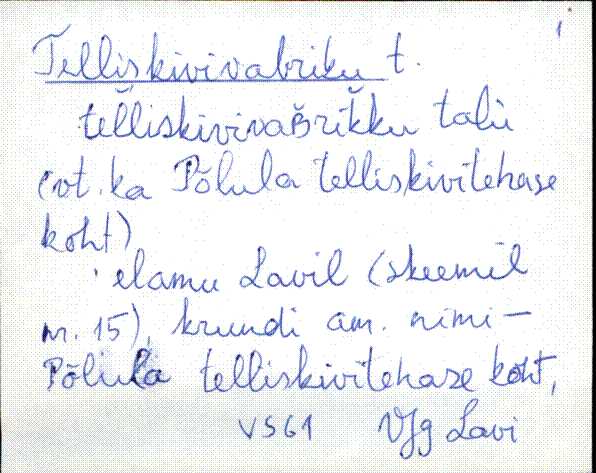 1
Telliskivivabriku t.
telliskivivaʙrikku talu
(vt. ka Põlula telliskivitehase
koht)
elamu Lavil (skeemil
nr. 15), krundi am. nimi –
Põlula telliskivitehase koht,
VJg Lavi